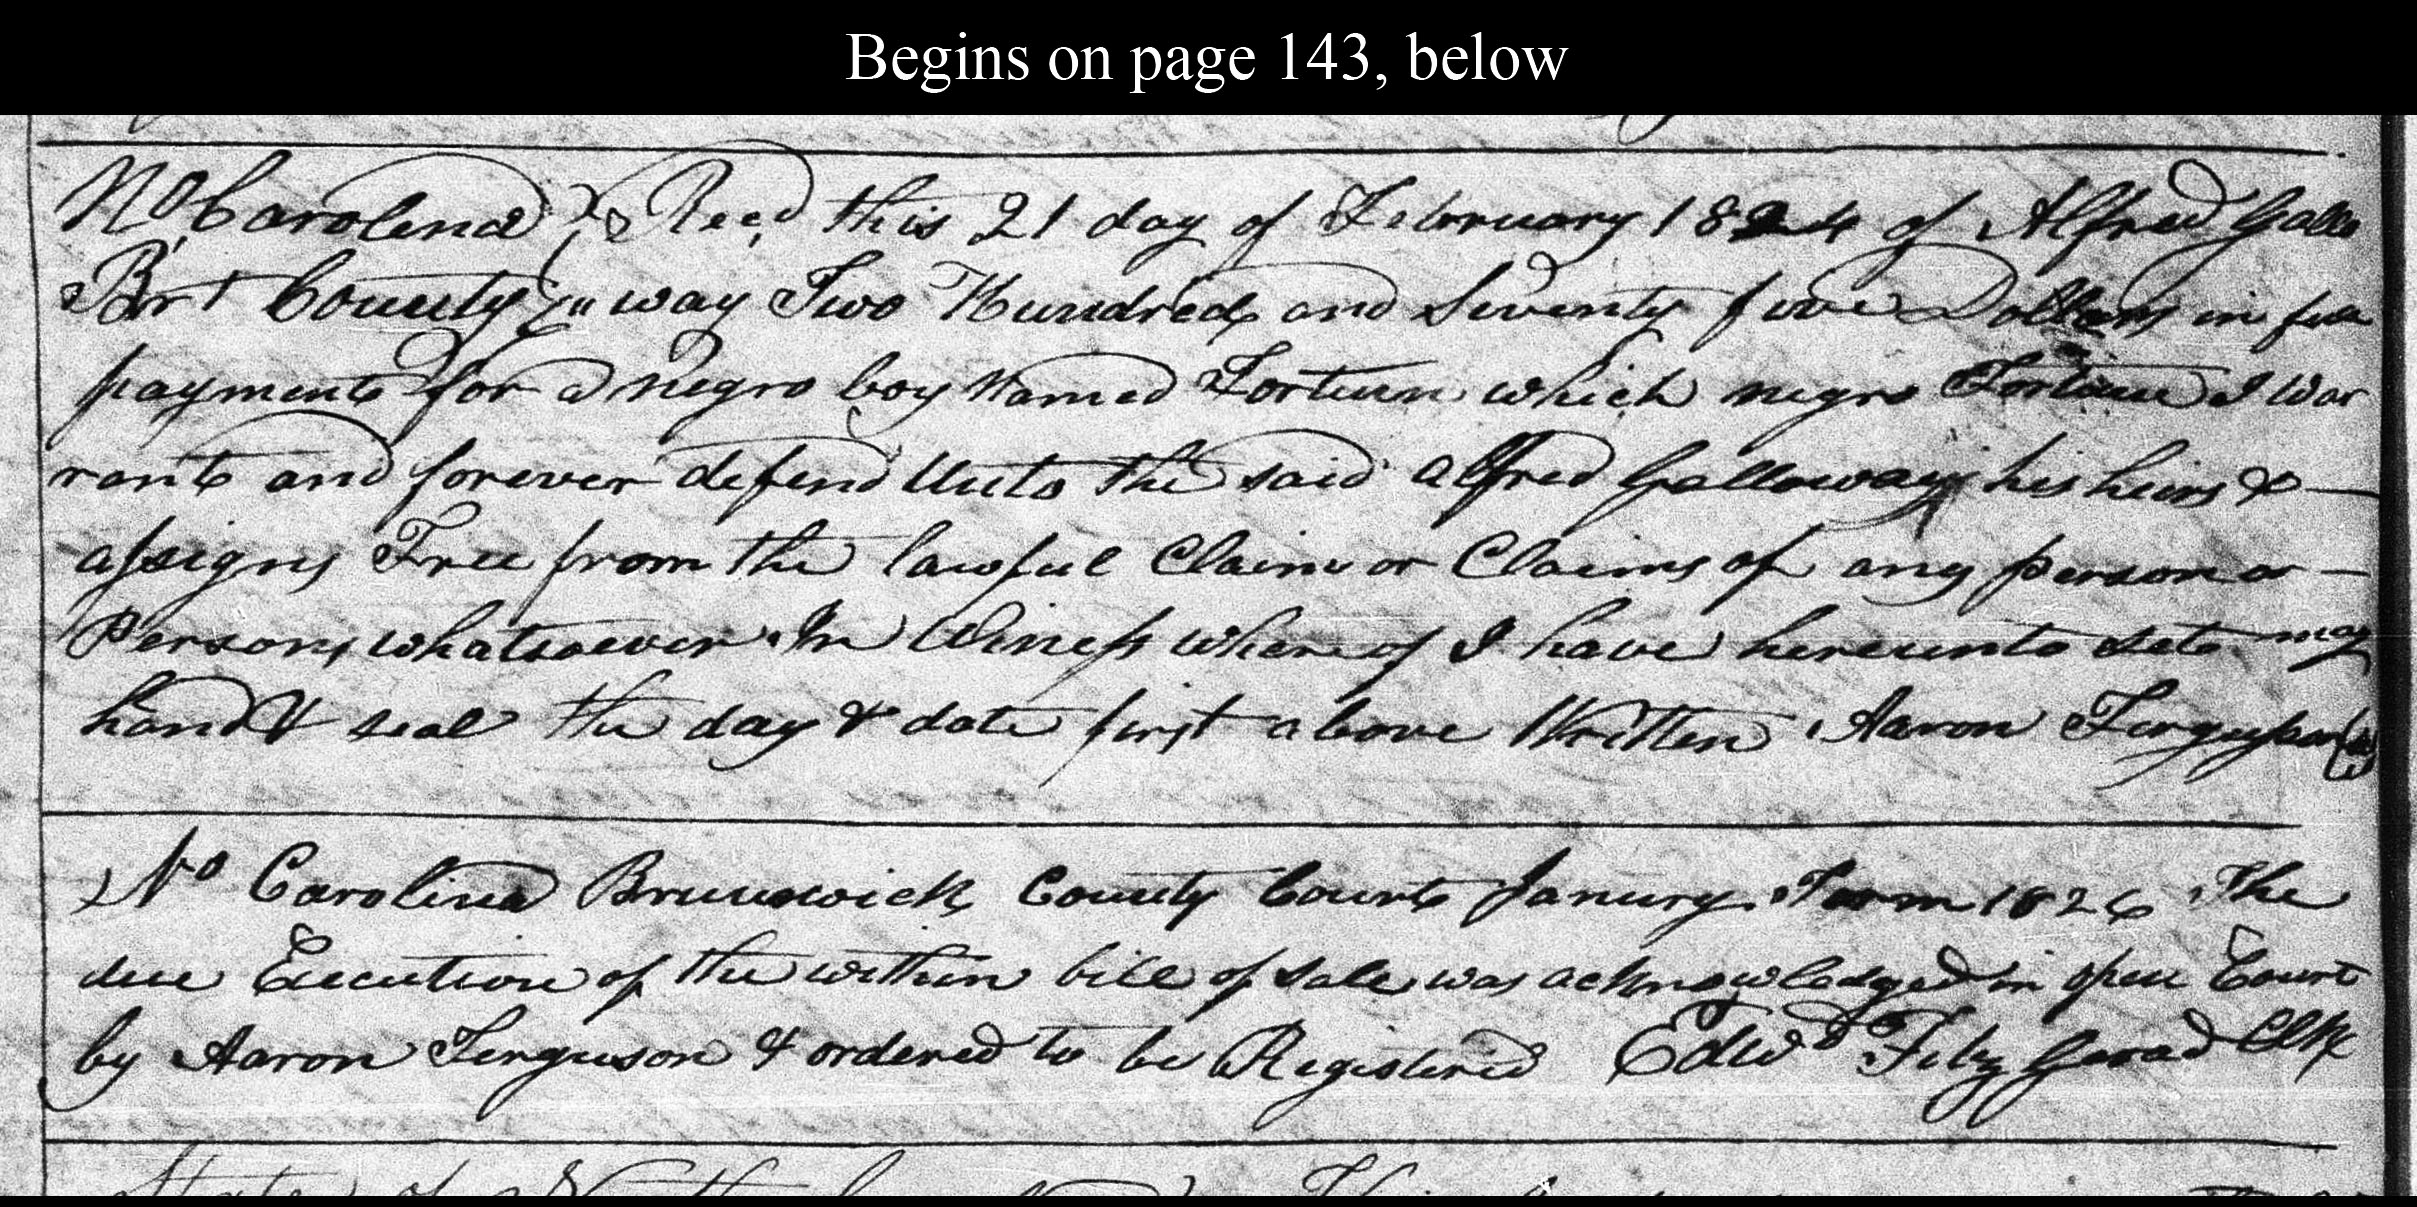 Begins on page 143, below
No Carolina Recd this 21 day of February 1824 of Alfred Gallo
Brk County way Two Hundred and Seventy five Dollars in full
payment for a negro boy Named Fortun which negro Fortune I War
rant and forever defend Unto the said Alfred Galloway his heirs &
assigns Free from the lawful Claim or Claims of any person or
Persons whatsoever In Winess whereof I have hereunto set my
hand & seal the day & date first above Written Aaron Ferguson
No Carolina Brunswick County Court Janury Term 1826 The
due Execution of the within bill of sale was acknowledged in open Court
by Aaron Ferguson & ordered to be Registered Edwd FitzGerad Clk
State of